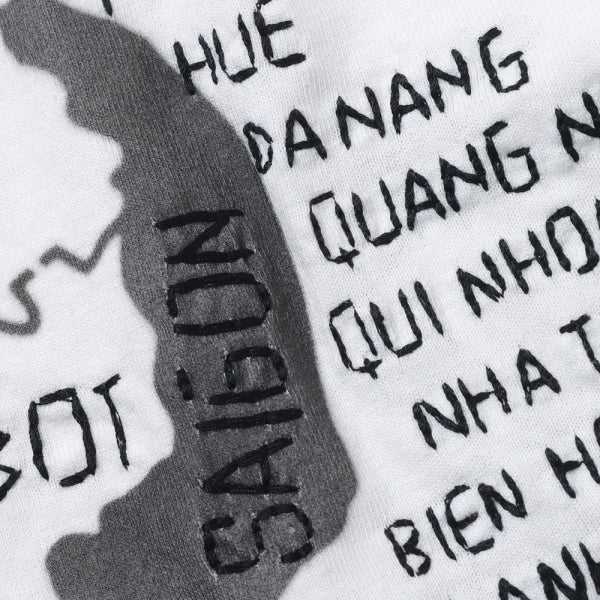 HUE
DA NANG
QUANG N
QUI NHO
NHA T
BIEN H
SAIGON
BOT